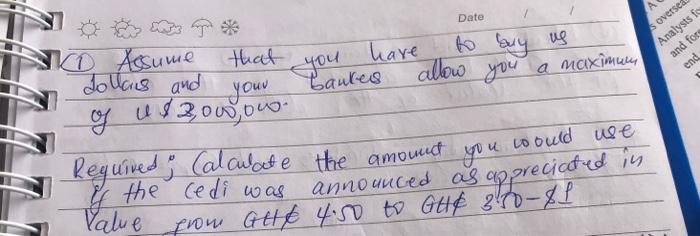 Date / /
① Assume that you have to buy us
dollars and your bankers allow you a maximum
of US$ 3,000,000.
Required; Calculate the amount you would use
if the cedi was announced as appreciated in
Value from GH¢ 4.50 to GH¢ 3.50 - $1
A C
s oversea
Analysts fo
and for
end